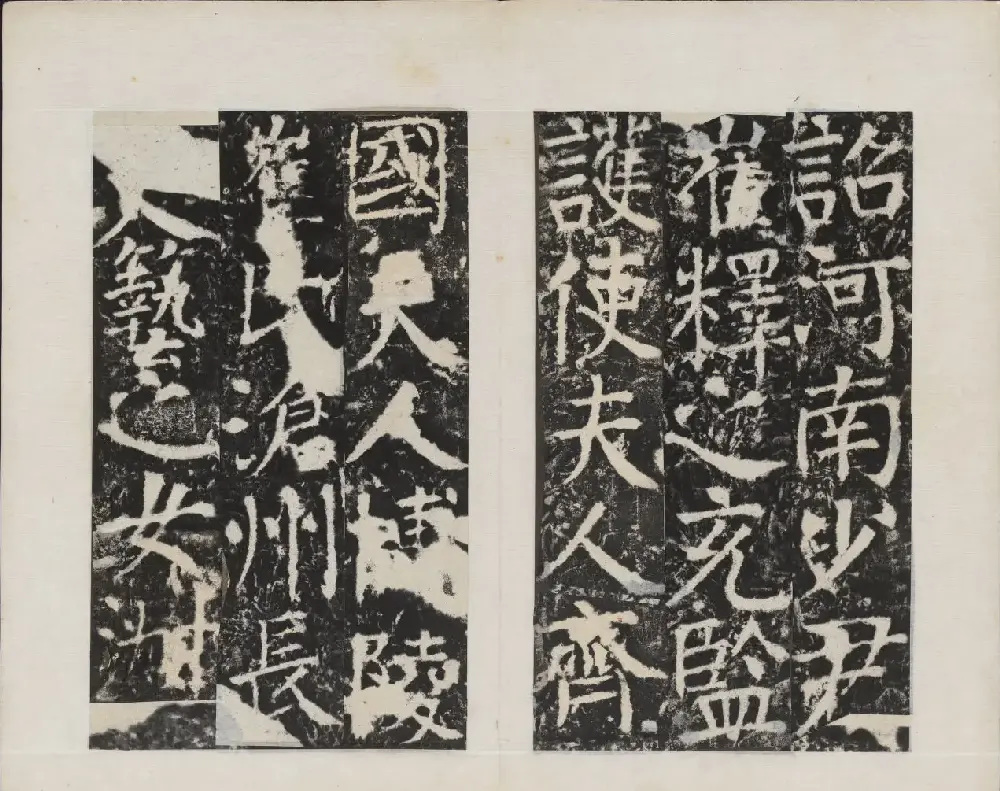 詔河南少尹
崔釋之充監
護使夫人齊
國夫人博陵
崔氏滄州長
人藝之女淑